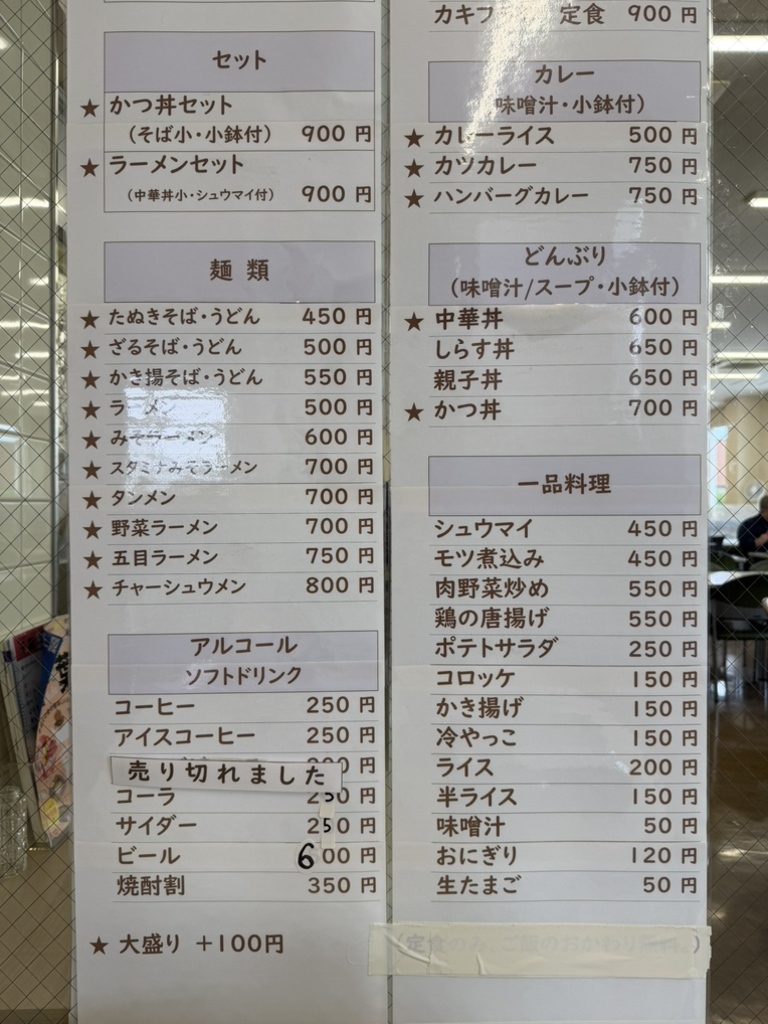 セット
★ かつ丼セット
（そば小・小鉢付） 900 円
★ ラーメンセット
（中華丼小・シュウマイ付） 900 円
麺 類
★ たぬきそば・うどん 450 円
★ ざるそば・うどん 500 円
★ かき揚そば・うどん 550 円
★ ラーメン 500 円
★ みそラーメン 600 円
★ スタミナみそラーメン 700 円
★ タンメン 700 円
★ 野菜ラーメン 700 円
★ 五目ラーメン 750 円
★ チャーシュウメン 800 円
アルコール
ソフトドリンク
コーヒー 250 円
アイスコーヒー 250 円
売り切れました 円
コーラ 250 円
サイダー 250 円
ビール 600 円
焼酎割 350 円
★ 大盛り +100円
カキフ 定食 900 円
カレー
味噌汁・小鉢付）
★ カレーライス 500 円
★ カツカレー 750 円
★ ハンバーグカレー 750 円
どんぶり
（味噌汁/スープ・小鉢付）
★ 中華丼 600 円
しらす丼 650 円
親子丼 650 円
★ かつ丼 700 円
一品料理
シュウマイ 450 円
モツ煮込み 450 円
肉野菜炒め 550 円
鶏の唐揚げ 550 円
ポテトサラダ 250 円
コロッケ 150 円
かき揚げ 150 円
冷やっこ 150 円
ライス 200 円
半ライス 150 円
味噌汁 50 円
おにぎり 120 円
生たまご 50 円
（定食のみ、ご飯のおかわり